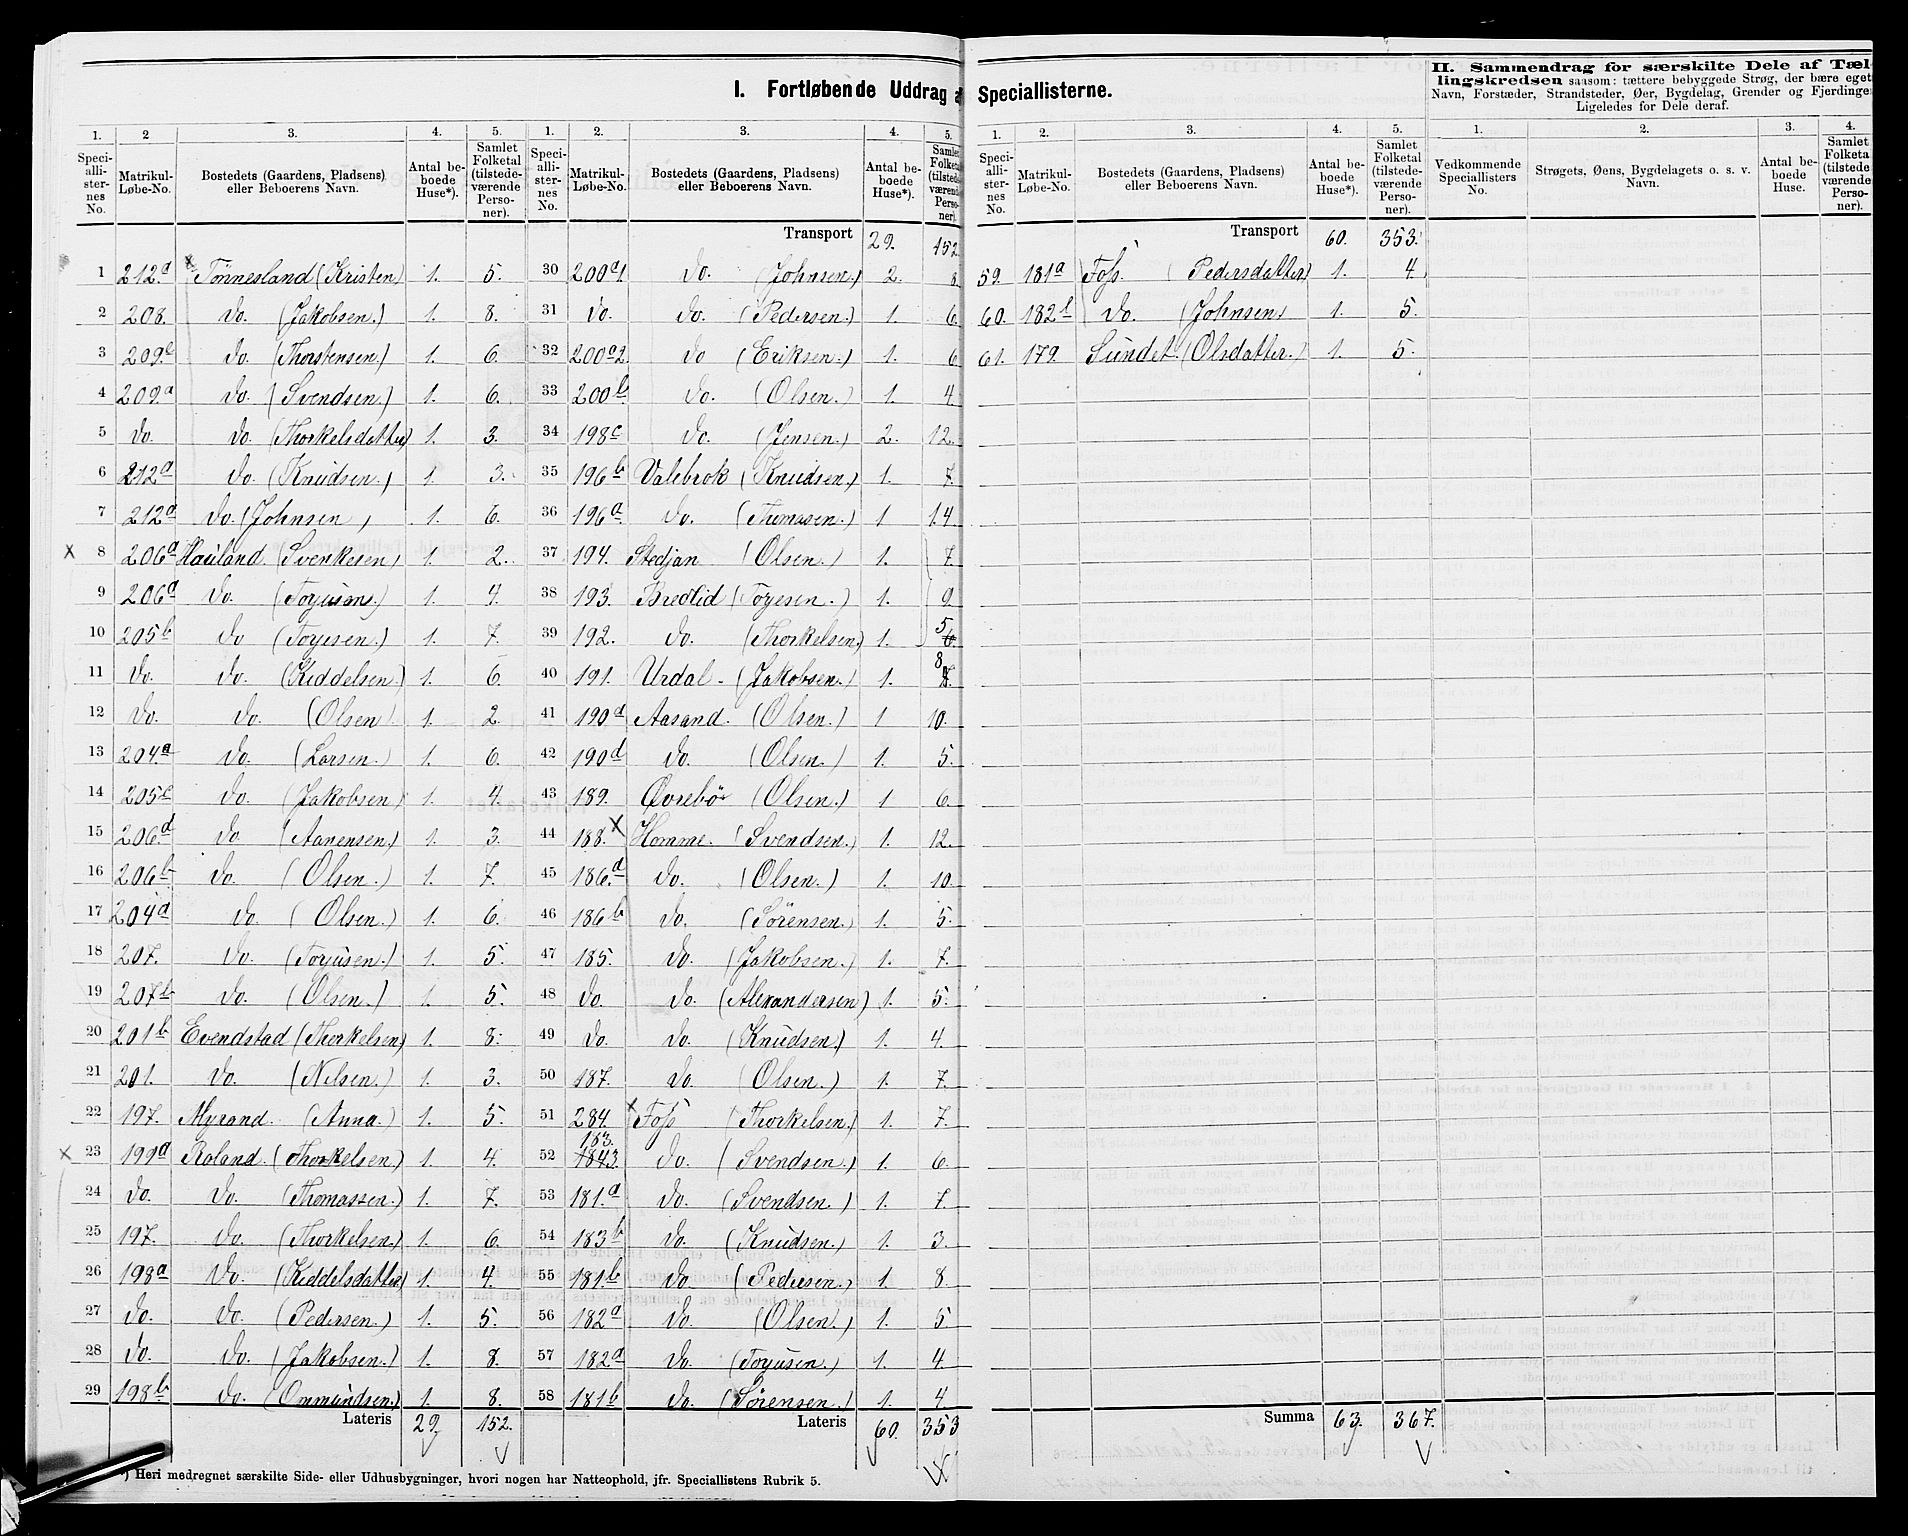 I. Fortløbende Uddrag a
Speciallisterne.
II. Sammendrag for særskilte Dele af Tæl-
lingskredsen saasom: tættere bebyggede Strøg, der bære eget
Navn, Forstæder, Strandsteder, Øer, Bygdelag, Grender og Fjerdinger
Ligeledes for Dele deraf.
1. 2 3. 4. 5.
Speciallisternes No. Matrikul-Løbe-No. Bostedets (Gaardens, Pladsens) eller Beboerens Navn. Antal beboede Huse*). Samlet Folketal (tilstedeværende Personer).
1 212a Tönnesland (Kristen) 1. 5.
2 208. do. (Jakobsen.) 1. 8.
3 209b do. (Thorstensen.) 1. 6.
4 209a do. (Svendsen.) 1. 6.
5 do. do. (Thorkelsdatter) 1. 3.
6 212a do. (Knudsen.) 1. 3.
7 212a do. (Johnsen) 1. 6.
x 8 206a Hauland. (Svenkesen) 1. 2.
9 206a do. (Torjusens.) 1. 4.
10 205b do (Torjesen.) 1. 7.
11 do. do. (Keddelsen.) 1. 6.
12 do. do. (Olsen) 1. 2.
13 204a do. (Larsen.) 1. 6.
14 205c do. (Jakobsen) 1. 4.
15 206d do. (Aanensen.) 1. 3.
16 206b do. (Olsen.) 1. 7.
17 204a do. (Olsen.) 1. 6.
18 207. do. (Torjusen.) 1. 5.
19 207b do. (Olsen.) 1. 5.
20 201b Evendstad (Thorkelsen) 1. 8.
21 201. do. (Nilsen.) 1. 3.
22 197. Myrand. (Anna.) 1. 5.
x 23 199a Roland. (Thorkelsen) 1. 4.
24 do. do. (Thomassen.) 1. 7.
25 197. do. (Thorkelsen.) 1. 6.
26 198a do. (Keddelsdatter) 1. 4.
27 do. do. (Pedersen.) 1. 5.
28 do. do. (Jakobsen.) 1. 8.
29 198b do. (Ommundsen.) 1. 8.
Lateris 29. 152.
*) Heri medregnet særskilte Side- eller Udhusbygninger, hvori nogen har Natteophold, jfr. Speciallistens Rubrik 5.
1. 2. 3. 4. 5.
Speciallisternes No. Matrikul-Løbe-No. Bostedets (Gaardens, Pladsens) eller Beboerens Navn. Antal beboede Huse*). Samlet Folketa (tilstedeværende Personer).
Transport 29. 152
30 200a1. do. (Johnsen.) 2. 8.
31 do. do. (Pedersen.) 1. 6.
32 200a2. do (Eriksen.) 1. 6
33 200b. do. (Olsen.) 1. 4.
34 198c do. (Jensen.) 2. 12.
35 196b Valebrok (Knudsen.) 1. 7.
36 196a do. (Thomasen.) 1 14.
37 194. Stedjan (Olsen.) 1. 7.
38 193. Bredlid (Torjesen.) 1. 9.
39 192. do. (Thorkelsen.) 1. 5
40 191. Urdal. (Jakobsen.) 1. 8
41 190a Aasand. (Olsen.) 1 10.
42 190d do. (Olsen.) 1. 5.
43 189. Øvrebø (Olsen.) 1 6.
44 188. x Homme. (Svendsen.) 1. 12.
45 186.d do. (Olsen.) 1. 10.
46 186b do. (Sörensen.) 1. 5.
47 185. do. (Jakobsen.) 1. 7.
48 do. do. (Alexandersen) 1. 5.
49 do. do. (Knudsen.) 1. 4.
50 187. do. (Olsen.) 1. 7.
51 284. x Foss (Thorkelsen.) 1. 7.
183.
52 1843. do. (Svendsen.) 1. 6.
53 181.a do. (Svendsen.) 1. 7.
54 183b do. (Knudsen.) 1. 3.
55 181b do. (Pedersen.) 1. 8.
56 182a do. (Olsen.) 1. 5.
57 182a do. (Torjusen.) 1. 4.
58 181b do. (Sörensen.) 1. 4
Lateris 60. 353
1. 2. 3. 4. 5.
Speciallisternes No. Matrikul-Løbe-No. Bostedets (Gaardens, Pladsens) eller Beboerens Navn. Antal beboede Huse*). Samlet Folketal (tilstedeværende Personer).
Transport 60. 353.
59. 181a Foss. (Pedersdatter) 1. 4.
60. 182b do. (Johnsen) 1. 5.
61. 179. Sundet. (Olsdatter.) 1. 5.
Summa 63. 367.
1. 2. 3. 4.
Vedkommende Speciallisters No. Strøgets, Øens, Bygdelagets o. s. v. Navn. Antal beboede Huse. Samlet Folketa (tilstede værende Personer).